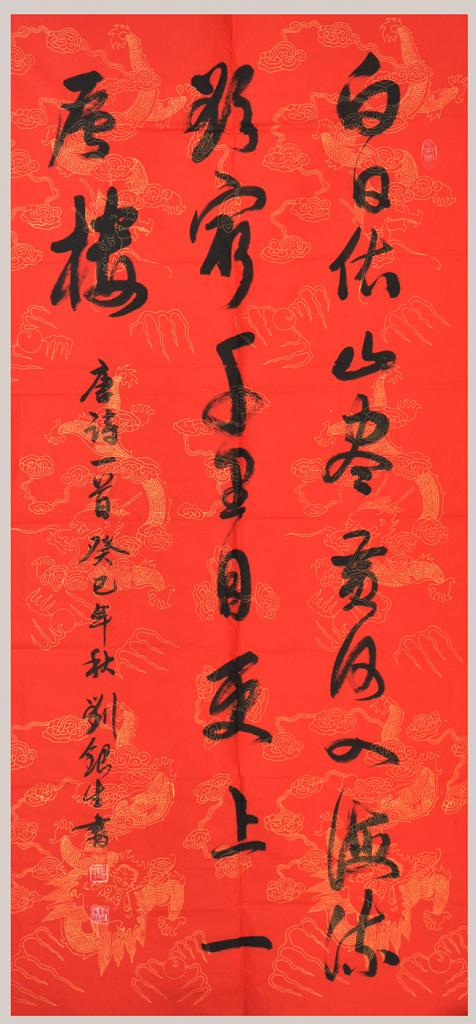 白日依山尽黄河入海流
欲穷千里目更上一
层楼
唐诗一首癸巳年秋劉銀生書